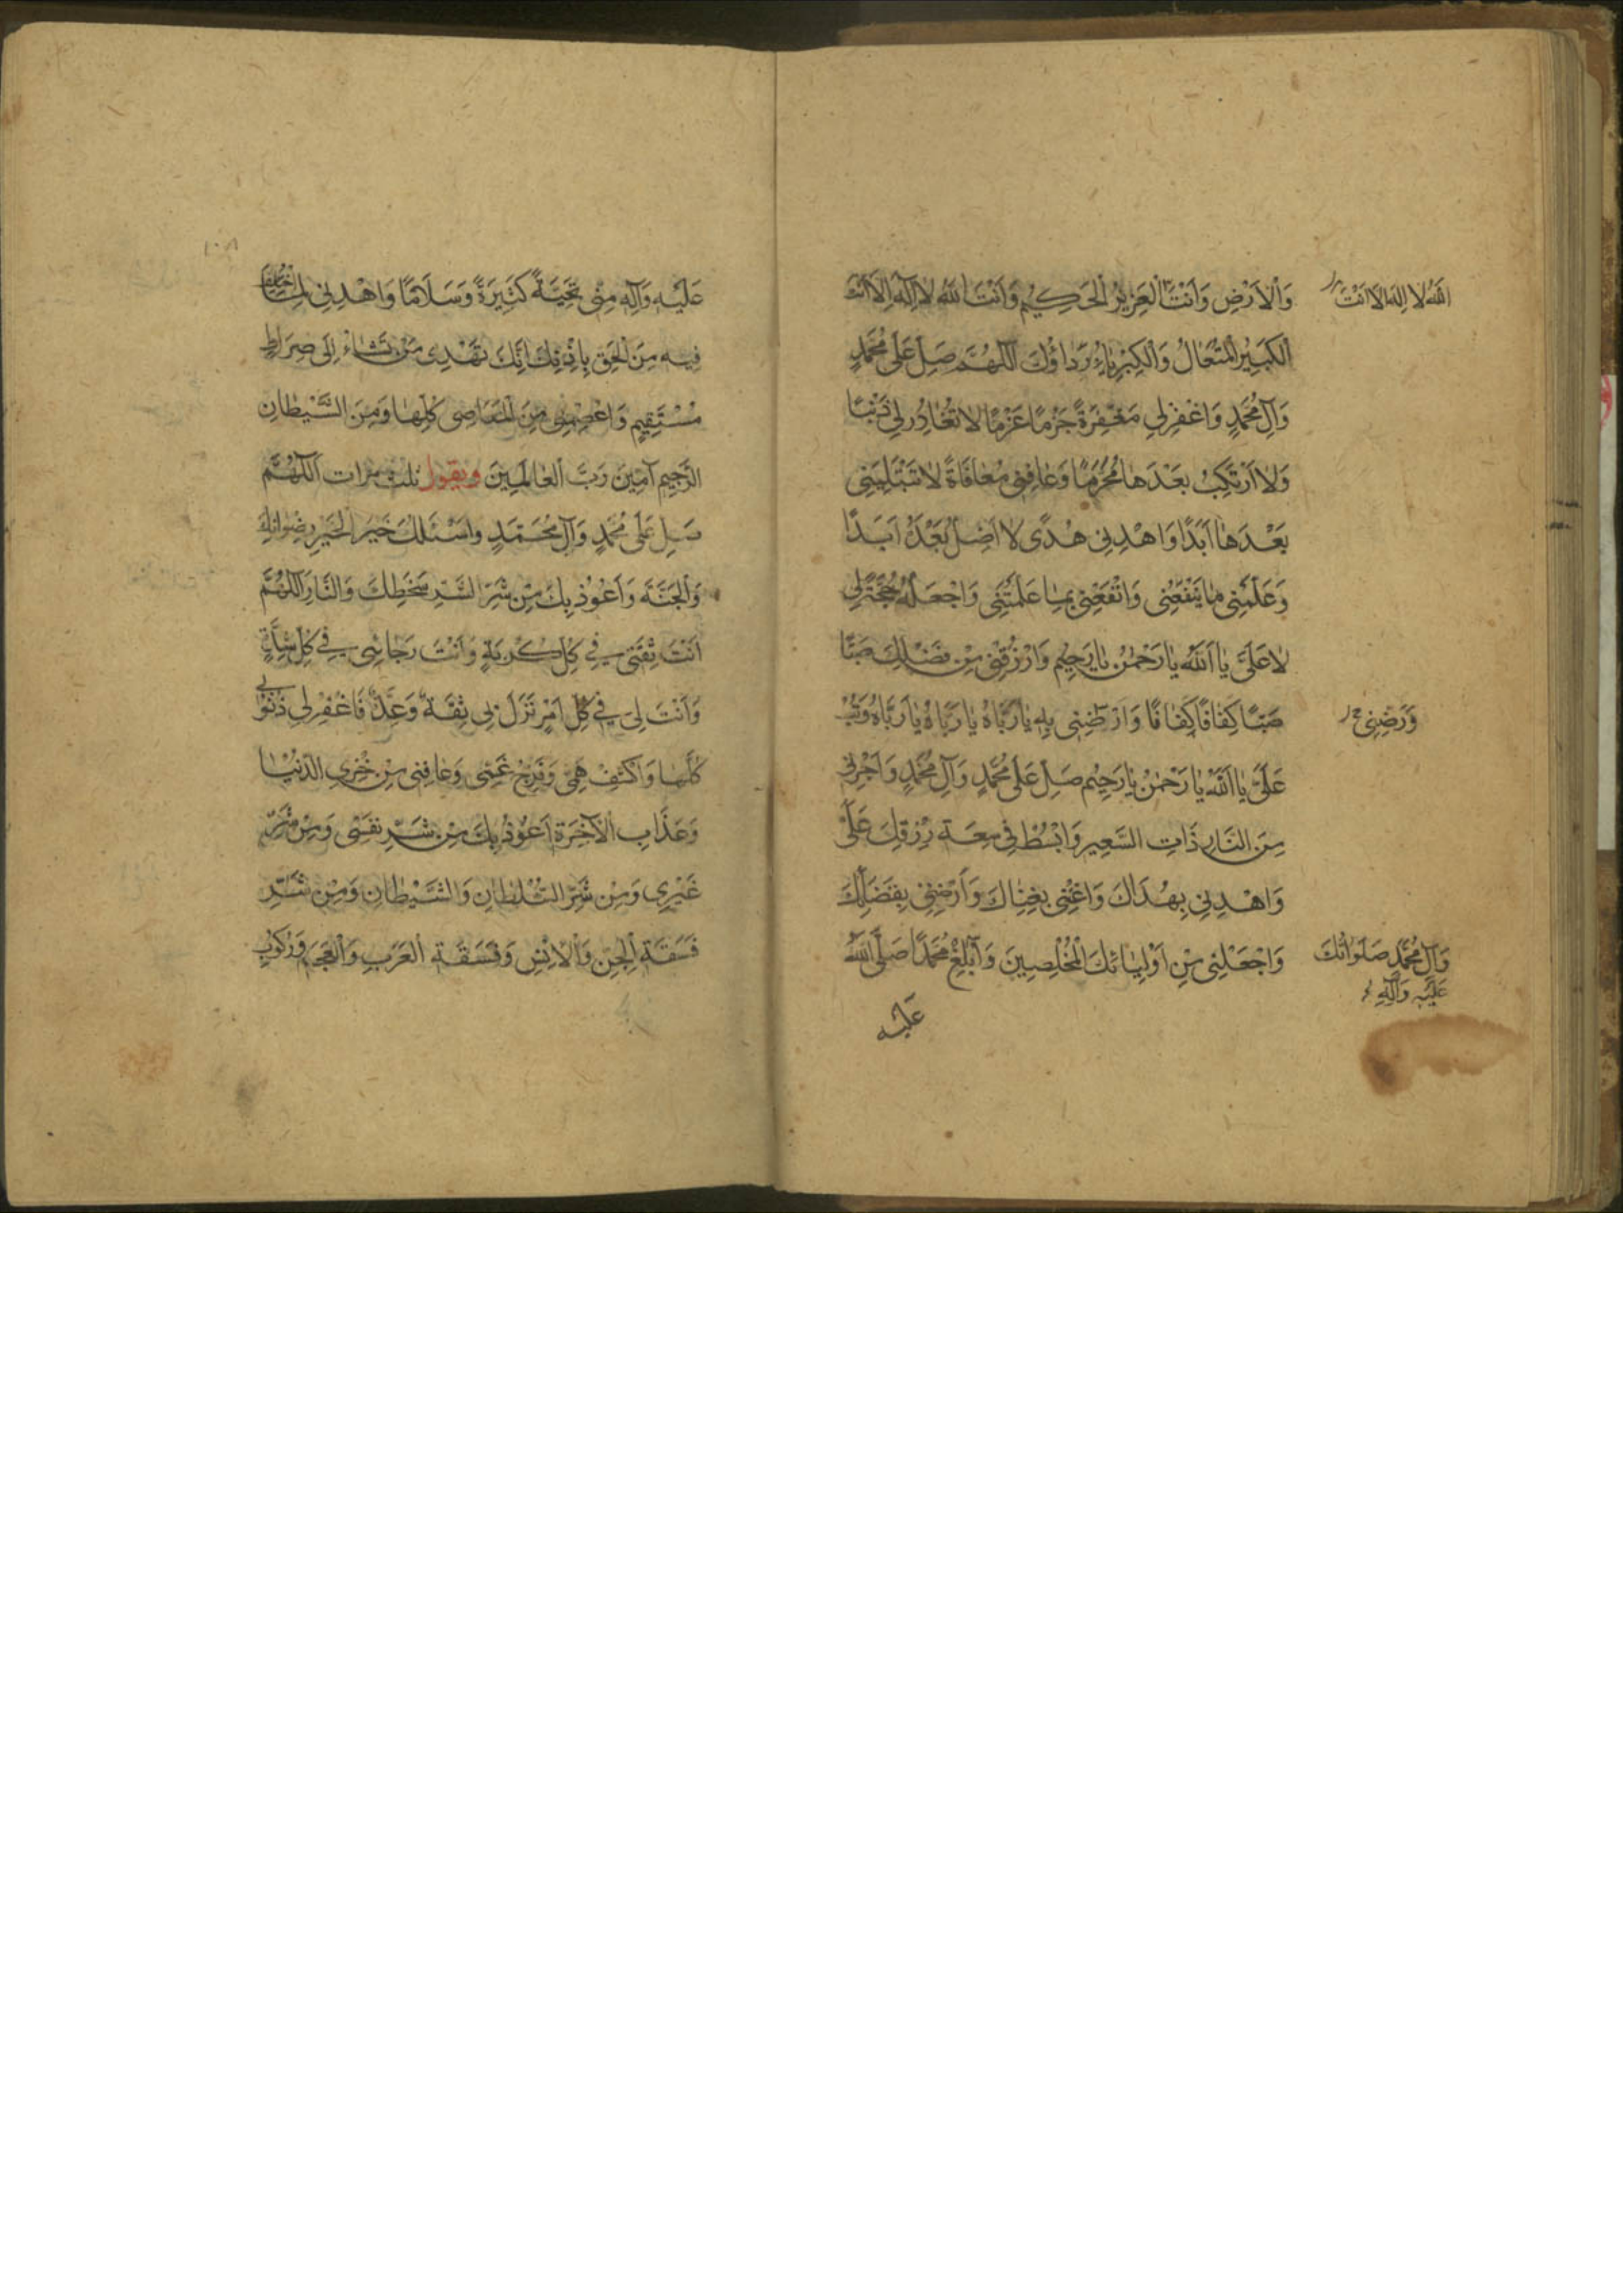 وَالْاَرْضِ وَاَنْتَ الْعَزِيزُ الْحَكِيُم وَاَنْتَ اللّٰهُ لَا اِلٰهَ اِلَّا اَنْتَ
اللّٰهُ لَا اِلٰهَ اِلَّا اَنْتَ
الْكَبِيرُ الْمُتَعَالُ وَالْكِبْرِيَاءُ رِدَاؤُكَ اَللّٰهُمَّ صَلِّ عَلَى مُحَمَّدٍ
وَآلِ مُحَمَّدٍ وَاغْفِرْلِي مَغْفِرَةً جَزْمًا عَزْمًا لَا تُغَادِرُ لِي ذَنْبًا
وَلَا اَرْتَكِبُ بَعْدَهَا مُحَرَّمًا وَعَافِنِي مُعَافَاةً لَا تَبْتَلِيَنِي
بَعْدَهَا اَبَدًا وَاهْدِنِي هُدًى لَا اَضِلُّ بَعْدَهُ اَبَدًا
وَعَلِّمْنِي مَا يَنْفَعُنِي وَانْفَعْنِي بِمَا عَلَّمْتَنِي وَاجْعَلْهُ حُجَّةً لِي
لَا عَلَيَّ يَا اَللّٰهُ يَا رَحْمٰنُ يَا رَحِيُم وَارْزُقْنِي مِنْ فَضْلِكَ صَبًّا
صَبًّا كَفَافًا كَفَافًا وَارْضِنِي بِهِ يَا رَبَّاهُ يَا رَبَّاهُ يَا رَبَّاهُ وَتُبْ
وَرَضِّنِي
عَلَيَّ يَا اَللّٰهُ يَا رَحْمٰنُ يَا رَحِيُم صَلِّ عَلَى مُحَمَّدٍ وَآلِ مُحَمَّدٍ وَاَجِرْنِي
مِنَ النَّارِ ذَاتِ السَّعِيرِ وَابْسُطْ فِي سِعَةِ رِزْقِكَ عَلَيَّ
وَاهْدِنِي بِهُدَاكَ وَاغْنِنِي بِغِنَاكَ وَاَرْضِنِي بِفَضْلِكَ
وَاجْعَلْنِي مِنْ اَوْلِيَائِكَ الْمُخْلِصِينَ وَاَبْلِغْ مُحَمَّدًا صَلَّى اللّٰهُ
وَآلِ مُحَمَّدٍ صَلَوَاتُكَ
عَلَيْهِ وَآلِهِ
عَلَيْهِ
١٠٨
عَلَيْهِ وَآلِهِ مِنِّي تَحِيَّةً كَثِيرَةً وَسَلَامًا وَاهْدِنِي لِمَا اخْتُلِفَ
فِيهِ مِنَ الْحَقِّ بِاِذْنِكَ اِنَّكَ تَهْدِي مَنْ تَشَاءُ اِلَى صِرَاطٍ
مُسْتَقِيمٍ وَاعْصِمْنِي مِنَ الْمَعَاصِي كُلِّهَا وَمِنَ الشَّيْطَانِ
الرَّجِيمِ آمِينَ رَبَّ الْعَالَمِينَ ويقول ثلث مرات اَللّٰهُمَّ
صَلِّ عَلَى مُحَمَّدٍ وَآلِ مُحَمَّدٍ وَاَسْئَلُكَ خَيْرَ الْخَيْرِ رِضْوَانَكَ
وَالْجَنَّةَ وَاَعُوذُ بِكَ مِنْ شَرِّ الشَّرِّ سَخَطِكَ وَالنَّارِ اَللّٰهُمَّ
اَنْتَ ثِقَتِي فِي كُلِّ كُرْبَةٍ وَاَنْتَ رَجَائِي فِي كُلِّ شِدَّةٍ
وَاَنْتَ لِي فِي كُلِّ اَمْرٍ نَزَلَ بِي ثِقَةٌ وَعُدَّةٌ فَاغْفِرْلِي ذُنُوبِي
كُلَّهَا وَاكْشِفْ هَمِّي وَفَرِّجْ غَمِّي وَعَافِنِي مِنْ خِزْيِ الدُّنْيَا
وَعَذَابِ الْآخِرَةِ اَعُوذُ بِكَ مِنْ شَرِّ نَفْسِي وَمِنْ شَرِّ
غَيْرِي وَمِنْ شَرِّ السُّلْطَانِ وَالشَّيْطَانِ وَمِنْ شَرِّ
فَسَقَةِ الْجِنِّ وَالْاِنْسِ وَفَسَقَةِ الْعَرَبِ وَالْعَجَمِ وَرُكُوبِ